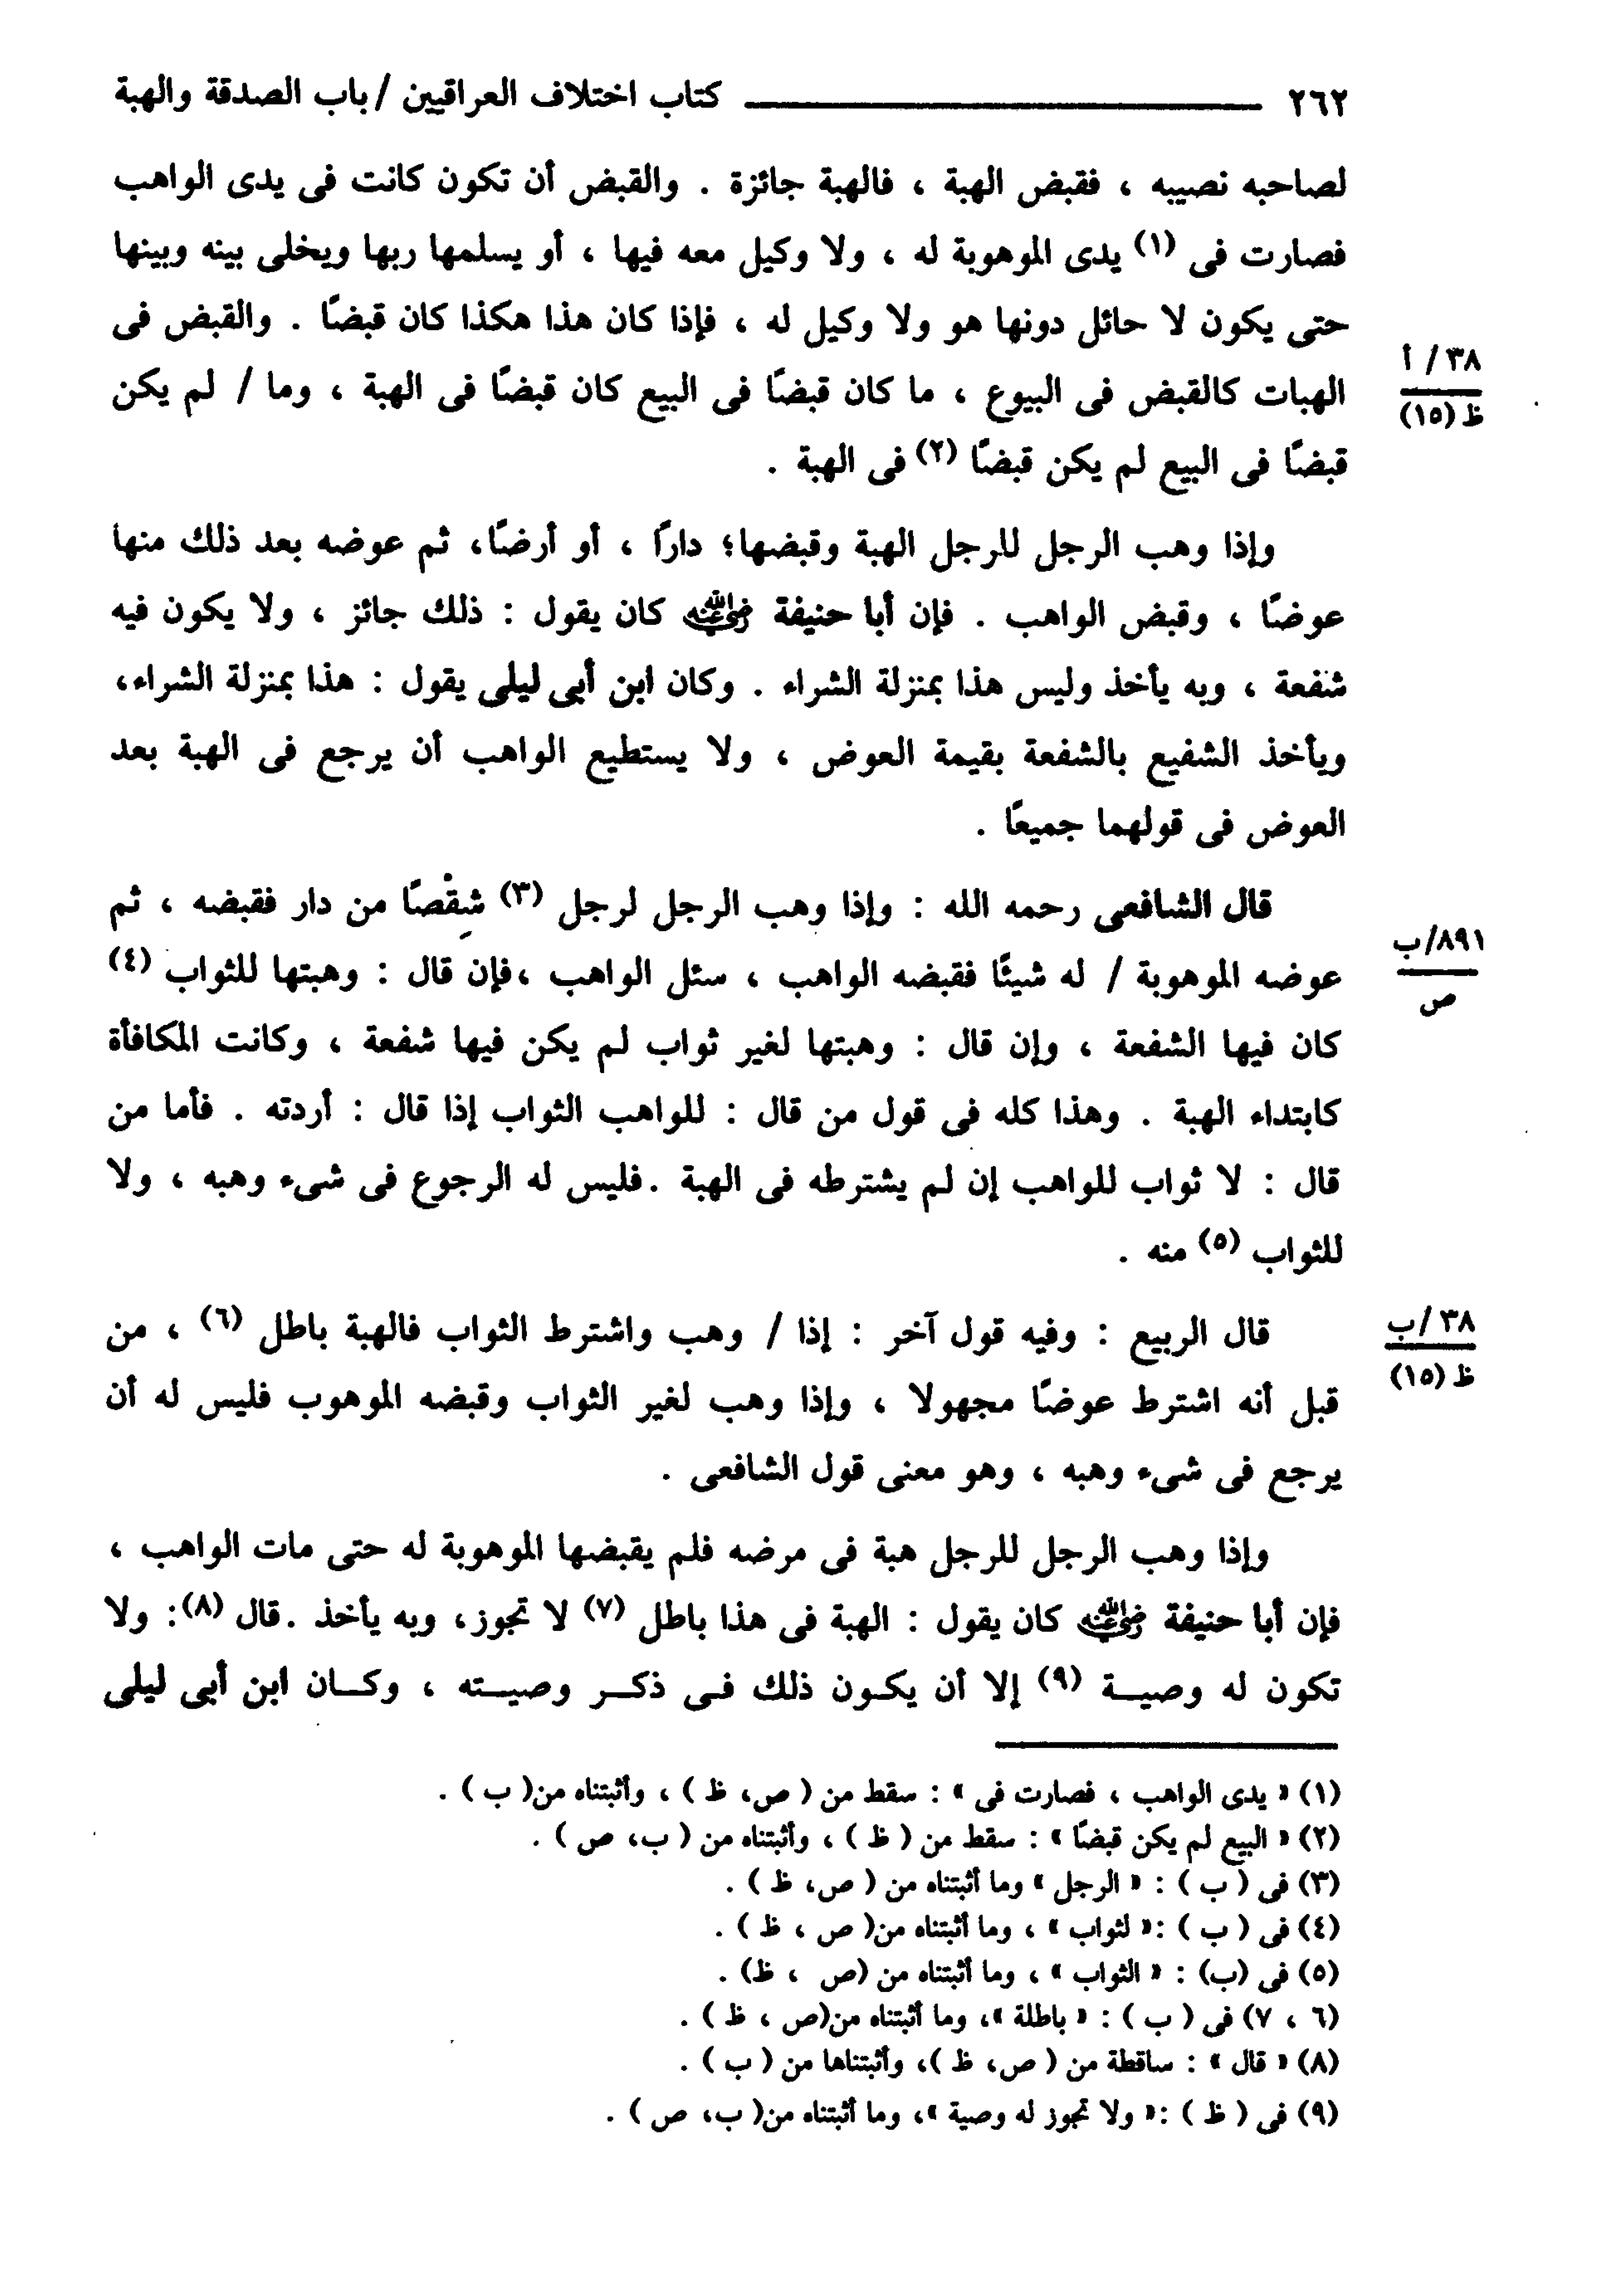 ٢٦٢ ـــــــ كتاب اختلاف العراقيين / باب الصدقة والهبة
لصاحبه نصيبه ، فقبض الهبة ، فالهبة جائزة . والقبض أن تكون كانت فى يدى الواهب
فصارت فى (١) يدى الموهوبة له ، ولا وكيل معه فيها ، أو يسلمها ربها ويخلى بينه وبينها
حتى يكون لا حائل دونها هو ولا وكيل له ، فإذا كان هذا هكذا كان قبضًا . والقبض فى
٣٨ / أ
ظ (١٥)
الهبات كالقبض فى البيوع ، ما كان قبضًا فى البيع كان قبضًا فى الهبة ، وما / لم يكن
قبضًا فى البيع لم يكن قبضًا (٢) فى الهبة .
وإذا وهب الرجل للرجل الهبة وقبضها؛ دارًا ، أو أرضًا، ثم عوضه بعد ذلك منها
عوضًا ، وقبض الواهب . فإن أبا حنيفة رضي الله عنه كان يقول : ذلك جائز ، ولا يكون فيه
شفعة ، وبه يأخذ وليس هذا بمنزلة الشراء . وكان ابن أبى ليلى يقول : هذا بمنزلة الشراء،
ويأخذ الشفيع بالشفعة بقيمة العوض ، ولا يستطيع الواهب أن يرجع فى الهبة بعد
العوض فى قولهما جميعًا .
قال الشافعى رحمه الله : وإذا وهب الرجل لرجل (٣) شِقْصًا من دار فقبضه ، ثم
٨٩١/ب
ص
عوضه الموهوبة / له شيئًا فقبضه الواهب ، سئل الواهب ،فإن قال : وهبتها للثواب (٤)
كان فيها الشفعة ، وإن قال : وهبتها لغير ثواب لم يكن فيها شفعة ، وكانت المكافأة
كابتداء الهبة . وهذا كله فى قول من قال : للواهب الثواب إذا قال : أردته . فأما من
قال : لا ثواب للواهب إن لم يشترطه فى الهبة .فليس له الرجوع فى شىء وهبه ، ولا
للثواب (٥) منه .
قال الربيع : وفيه قول آخر : إذا / وهب واشترط الثواب فالهبة باطل (٦) ، من
٣٨ /ب
ظ (١٥)
قبل أنه اشترط عوضًا مجهولا ، وإذا وهب لغير الثواب وقبضه الموهوب فليس له أن
يرجع فى شىء وهبه ، وهو معنى قول الشافعى .
وإذا وهب الرجل للرجل هبة فى مرضه فلم يقبضها الموهوبة له حتى مات الواهب ،
فإن أبا حنيفة رضي الله عنه كان يقول : الهبة فى هذا باطل (٧) لا تجوز، وبه يأخذ .قال (٨): ولا
تكون له وصيــة (٩) إلا أن يكـون ذلك فـى ذكــر وصيـته ، وكــان ابن أبى ليلى
(١) « يدى الواهب ، فصارت فى » : سقط من ( ص، ظ ) ، وأثبتناه من( ب ) .
(٢) « البيع لم يكن قبضًا » : سقط من ( ظ ) ، وأثبتناه من ( ب، ص ) .
(٣) فى ( ب ) : « الرجل » وما أثبتناه من ( ص، ظ ) .
(٤) فى ( ب ) :« لثواب » ، وما أثبتناه من( ص ، ظ ) .
(٥) فى (ب) : « الثواب » ، وما أثبتناه من (ص ، ظ) .
(٦ ، ٧) فى ( ب ) : « باطلة »، وما أثبتناه من(ص ، ظ ) .
(٨) « قال » : ساقطة من ( ص، ظ )، وأثبتناها من ( ب ) .
(٩) فى ( ظ ) :« ولا تجوز له وصية »، وما أثبتناه من( ب، ص ) .